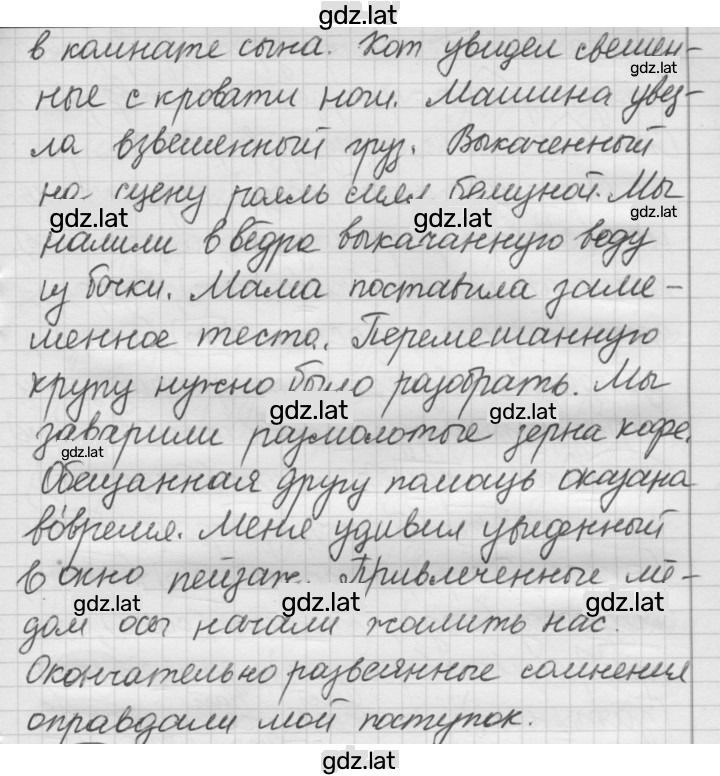 gdz.lat
в комнате сына. Кот увидел свешен-
gdz.lat
ные с кровати ноги. Машина увез-
ла взвешенный груз. Выкаченный
gdz.lat
на сцену рояль сиял белизной. Мы
gdz.lat gdz.lat
налили в вёдра выкачанную воду
из бочки. Мама поставила заме-
шенное тесто. Перемешанную
крупу нужно было разобрать. Мы
gdz.lat gdz.lat
заварили размолотые зерна кофе.
gdz.lat
Обещанная другу помощь оказана
вовремя. Меня удивил увиденный
в окно пейзаж. Привлеченные мё-
gdz.lat gdz.lat gdz.lat
дом осы начали жалить нас.
Окончательно развеянные сомнения
оправдали мой поступок.
gdz.lat